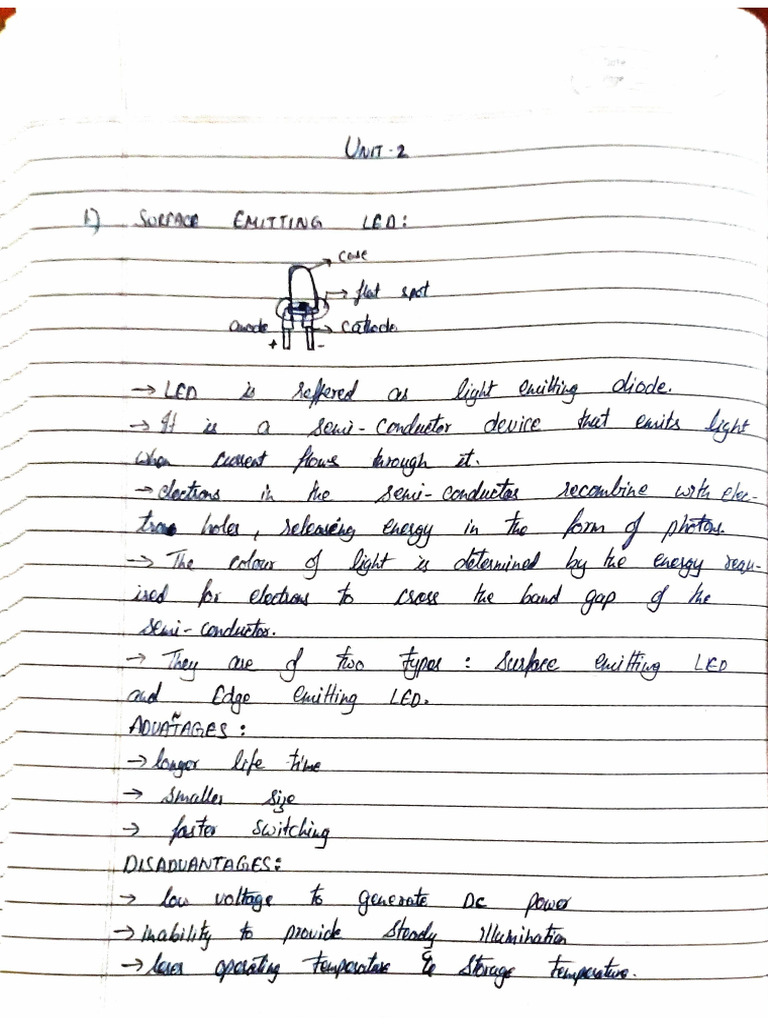 UNIT-2
1) SURFACE EMITTING LED:
case
flat spot
anode
cathode
+ -
→ LED is reffered as light emitting diode.
→ It is a semi-conductor device that emits light
when current flows through it.
→ electrons in the semi-conductor recombine with elec-
tron holes, releasing energy in the form of photons.
→ The colour of light is determined by the energy requ-
ired for electrons to cross the band gap of the
semi-conductor.
→ They are of two types : surface emitting LED
and Edge emitting LED.
ADVANTAGES :
→ longer life time
→ smaller size
→ faster switching
DISADVANTAGES:
→ low voltage to generate DC power
→ inability to provide steady illumination
→ operating temperature & storage temperature.